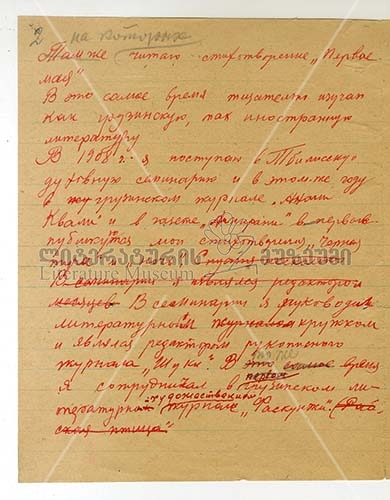 2
на которых
Там же читаю стихотворение „Первое
мая“
В это самое время тщательно изучал
как грузинскую, так иностранную
литературу
В 1908 г. я поступаю в Тбилисскую
духовную семинарию и в этом же году
в грузинском журнале
Квали“ и в газете в первые
публикуются мои стихотворения
ლიტერატურის მუზეუმი
Literature Museum
В семинарии я являлся редактором
месяцев В семинарии я руководил
литературным кружком
и являлся редактором рукописного
журнала „Шуки“. В это самое время
том же
первом
я сотрудничал в грузинском ли-
тературно журнале „Фаскунжи“.
художественном
птица“